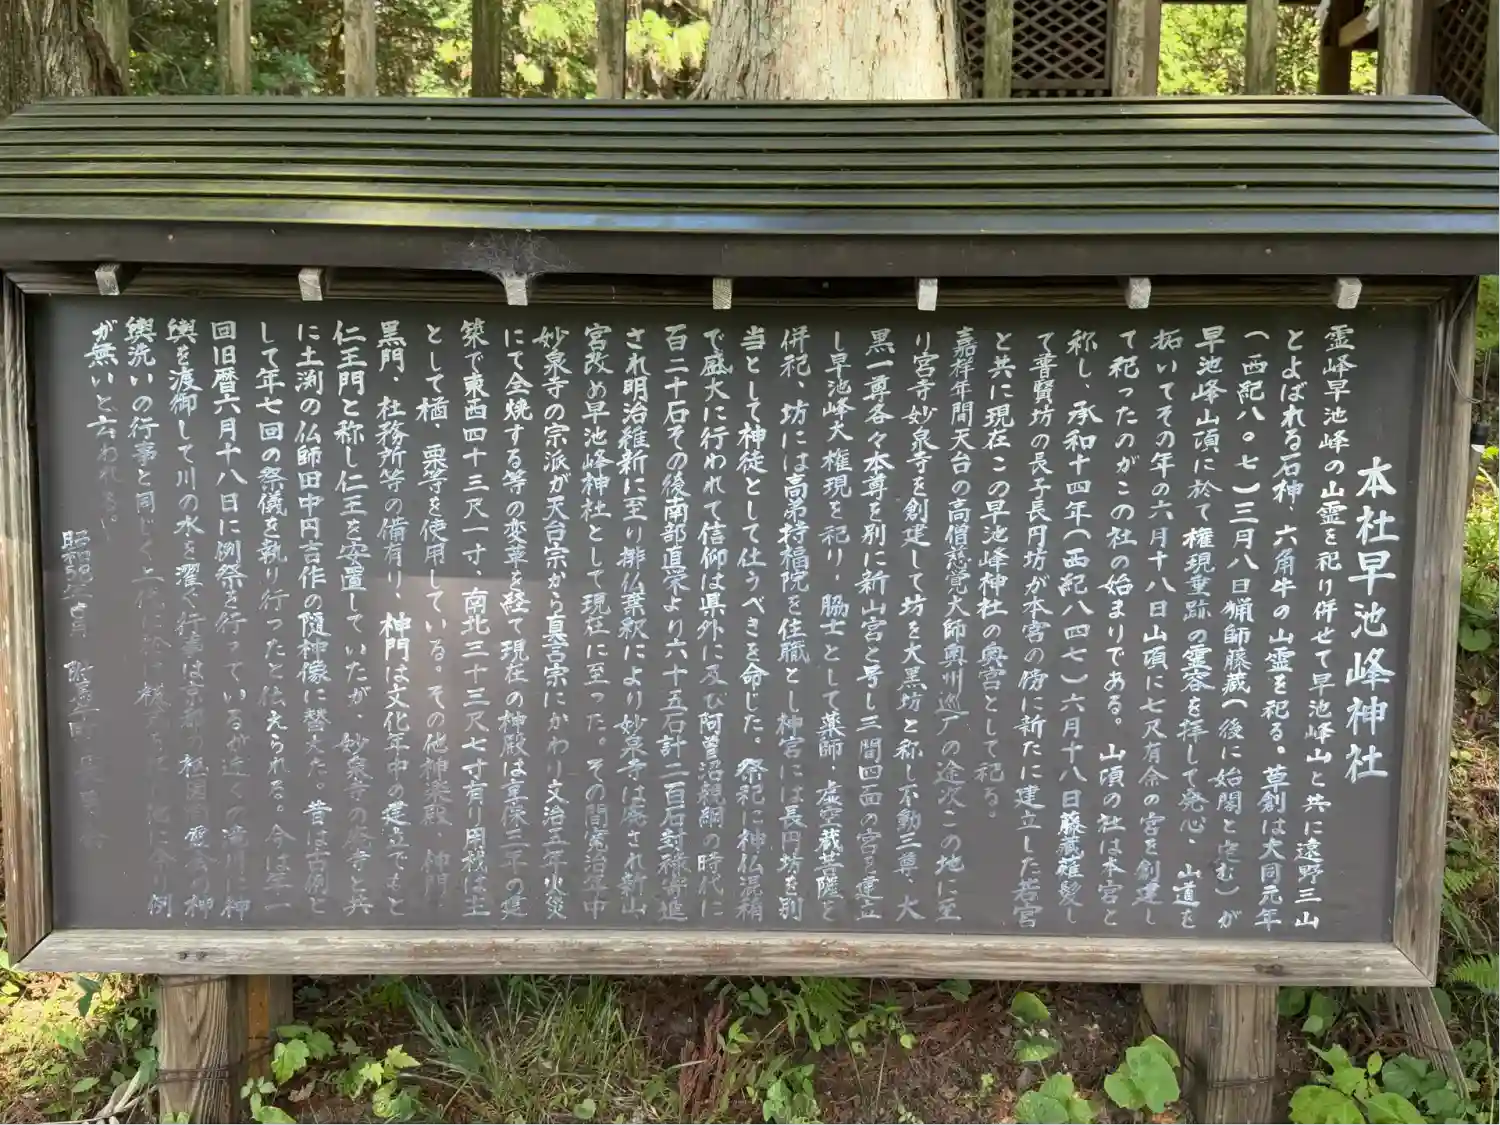 本社早池峰神社
霊峰早池峰の山霊を祀り併せて早池峰山と共に遠野三山
とよばれる石神、六角牛の山霊を祀る。草創は大同元年
(西紀八〇七)三月八日猟師藤蔵(後に始閣と改む)が
早池峰山頂に於て権現垂跡の霊容を拝して発心、山道を
拓いてその年の六月十八日山頂に七尺有余の宮を創建し
て祀ったのがこの社の始まりである。山頂の社は本宮と
称し、承和十四年(西紀八四七)六月十八日藤蔵薙髪し
て普賢坊の長子長円坊が本宮の傍に新たに建立した若宮
と共に現在この早池峰神社の奥宮として祀る。
嘉祥年間天台の高僧慈覚大師奥州巡戸の途次この地に至
り宮寺妙泉寺を創建して坊を大黒坊と称し不動三尊・大
黒一尊各々本尊を別に新山宮と号し三間四面の宮を建立
し早池峰大権現を祀り、脇士として薬師・虚空蔵菩薩を
併祀、坊には高弟持福院を住職とし神宮には長円坊を別
当として神徒として仕うべきを命じた。祭祀に神仏混稍
で盛大に行われて信仰は県外に及び阿曽沼親綱の時代に
百二十石その後南部直栄より六十五石計二百石封禄寄進
され明治維新に至り排仏棄釈により妙泉寺は廃され新山
宮改め早池峰神社として現在に至った。その間寛治年中
妙泉寺の宗派が天台宗から真言宗にかわり文治五年火災
にて全焼する等の変革を経て現在の神殿は享保三年の建
築で東西四十三尺一寸、南北三十三尺七寸有り用材は土
として楢、栗等を使用している。その他神楽殿、神門、
黒門、社務所等の備有り、神門は文化年中の建立でもと
仁王門と称し仁王を安置していたが、妙泉寺の廃寺と共
に土渕の仏師田中円吉作の随神像に替えた。昔は古例と
して年七回の祭儀を執り行ったと伝えられる。今は年一
回旧暦六月十八日に例祭を行っているが近くの滝川に神
輿を渡御して川の水を濯ぐ行事は京都の祇園 の神
輿洗いの行事と同じく 他に余り例
が無いと云われる。
昭和 年 月